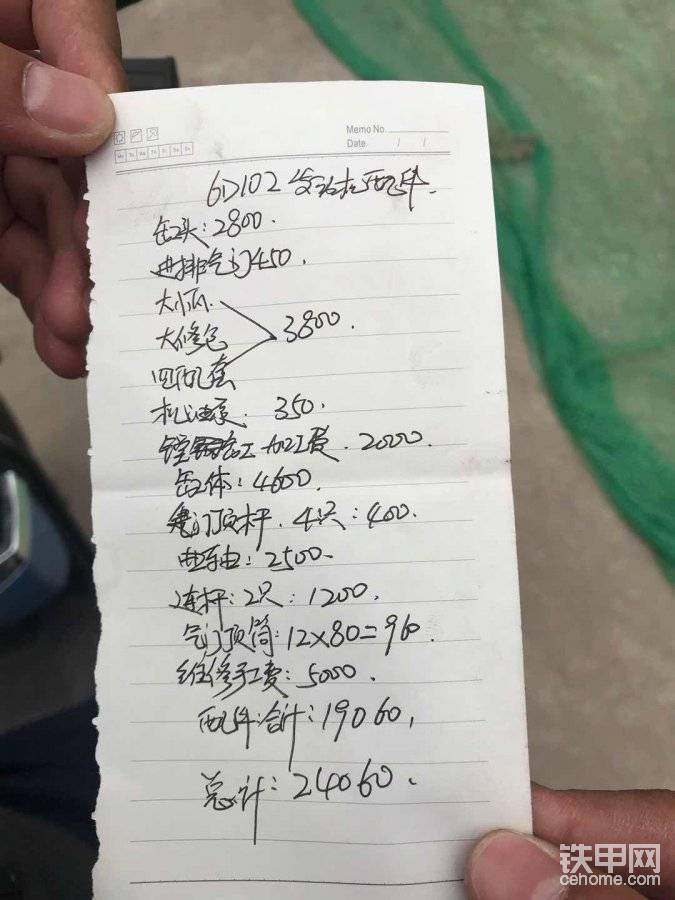 Memo No.
Mo Tu We Th Fr Sa Su
Date / /
6D102发动机配件.
缸头:2800.
进排气门450.
大小瓦.
大修包 3800.
四配套
机油泵. 350.
镗缸加工费. 2000.
缸体:4600.
气门顶杆.4只:400.
曲轴:2500.
连杆:2只:1200.
气门顶筒:12×80=960.
维修工费:5000.
配件合计:19060.
总计:24060.
铁甲网
cehome.com